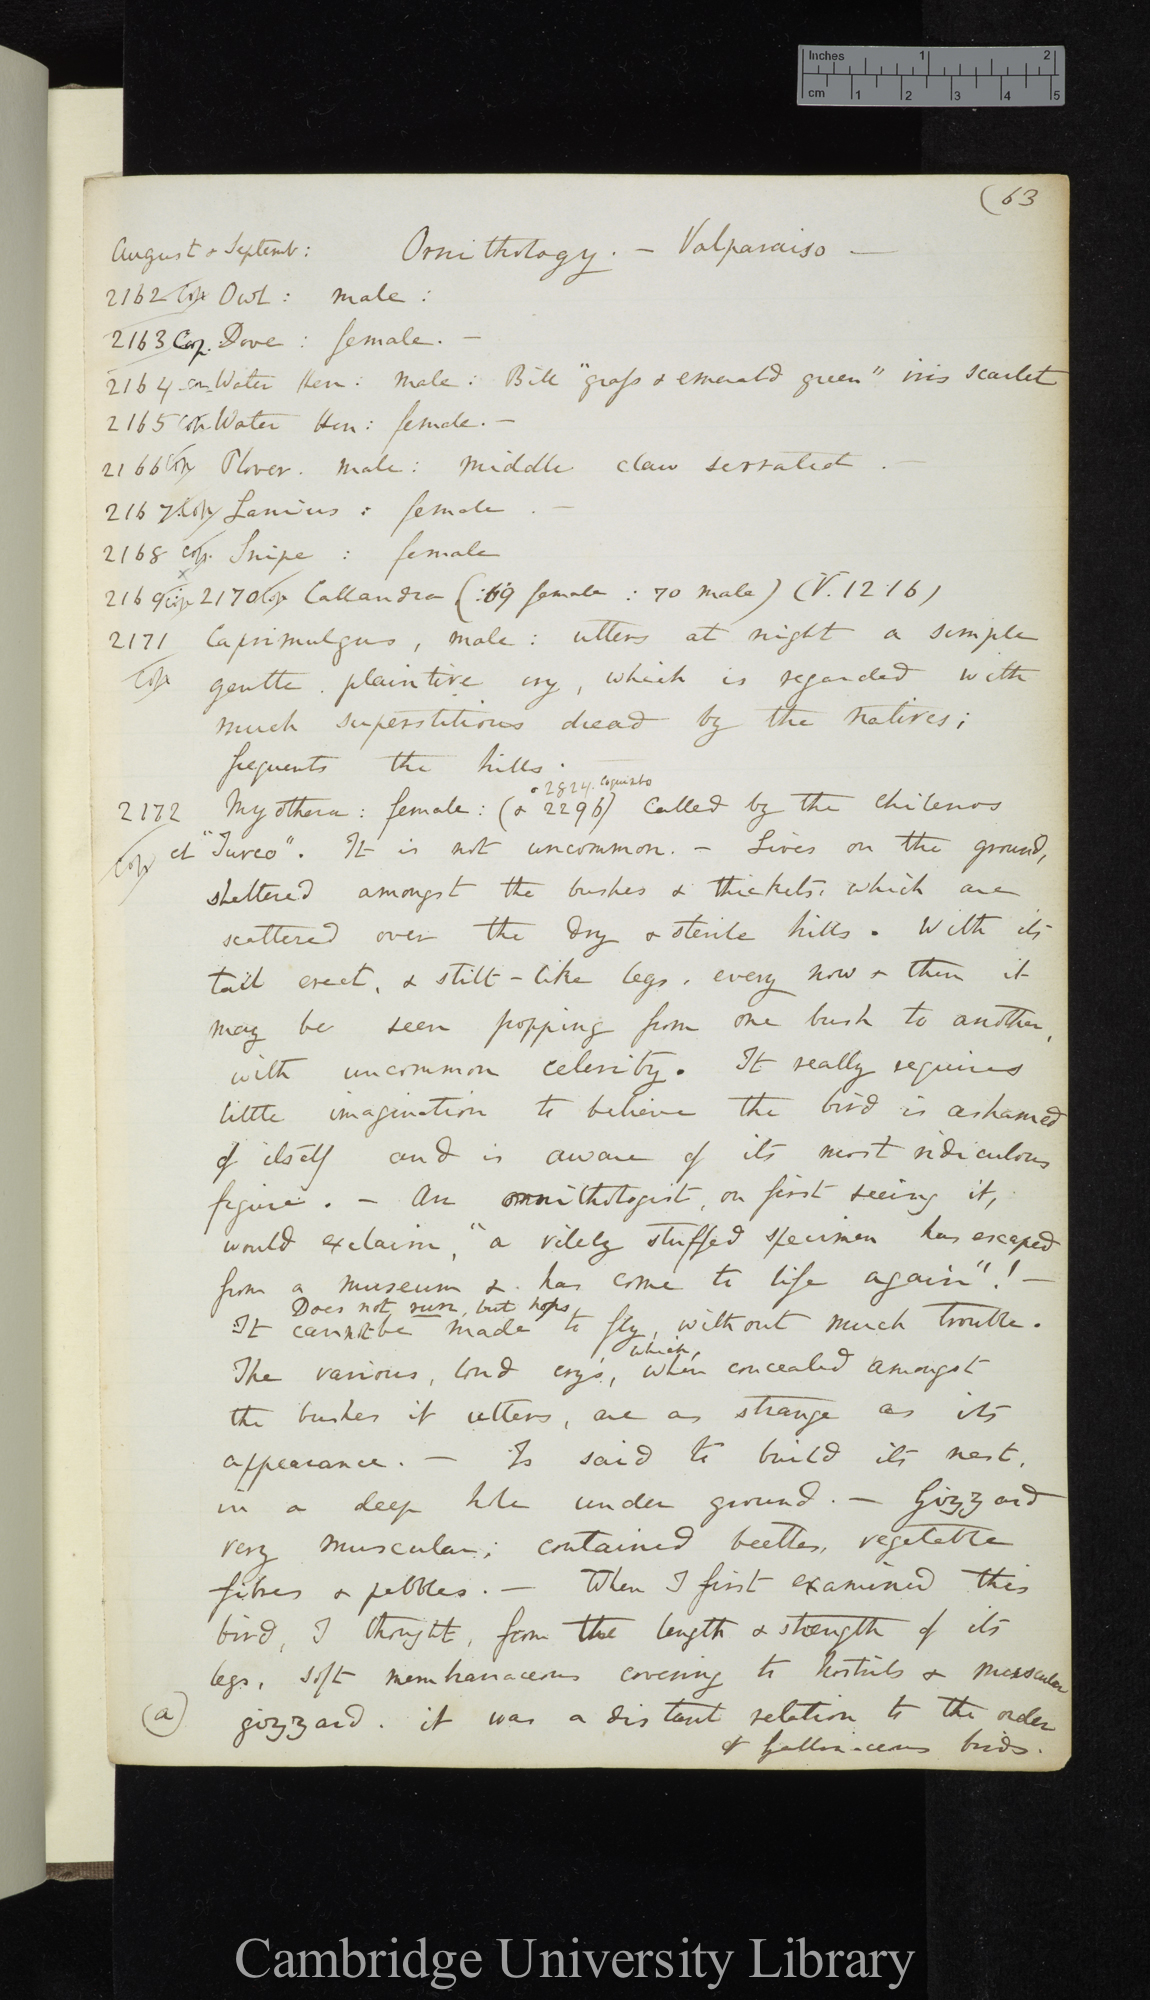 Inches 1 2
cm 1 2 3 4 5
(63
August & Septemb: Ornithology. — Valparaiso —
2162 Cop Owl: male:
2163 Cop. Dove: female. —
2164 Cop Water Hen: male: Bill "grass & emerald green" iris scarlet
2165 Cop Water Hen: female. —
2166 Cop Plover. male: middle claw serrated. —
2167 Cop Lanius: female. —
2168 Cop. Snipe: female
x
2169 Cop 2170 Cop Callandra (:69 female: 70 male) (V. 1216)
2171 Caprimulgus, male: utters at night a simple
Cop gentle plaintive cry, which is regarded with
much superstitious dread by the natives;
frequents the hills.
& 2824. Coquimbo
2172 Myothera: female: (& 2296) called by the Chilenos
Cop el "Turco". It is not uncommon. — Lives on the ground,
sheltered amongst the bushes & thickets, which are
scattered over the dry & sterile hills. With its
tail erect, & stilt-like legs, every now & then it
may be seen popping from one bush to another,
with uncommon celerity. It really requires
little imagination to believe the bird is ashamed
of itself and is aware of its most ridiculous
figure. — An ornithologist, on first seeing it,
would exclaim, "a vilely stuffed specimen has escaped
from a museum & has come to life again"! —
Does not run, but hops,
It cannot be made to fly, without much trouble.
which,
The various, loud cry's, when concealed amongst
the bushes it utters, are as strange as its
appearance. — Is said to build its nest,
in a deep hole under ground. — Gizzard
very muscular; contained beetles, vegetable
fibres & pebbles. — When I first examined this
bird, I thought, from the length & strength of its
legs, soft membranaceous covering to nostrils & muscular
(a) gizzard. it was a distant relation to the order
of Gallinaceous birds.
Cambridge University Library